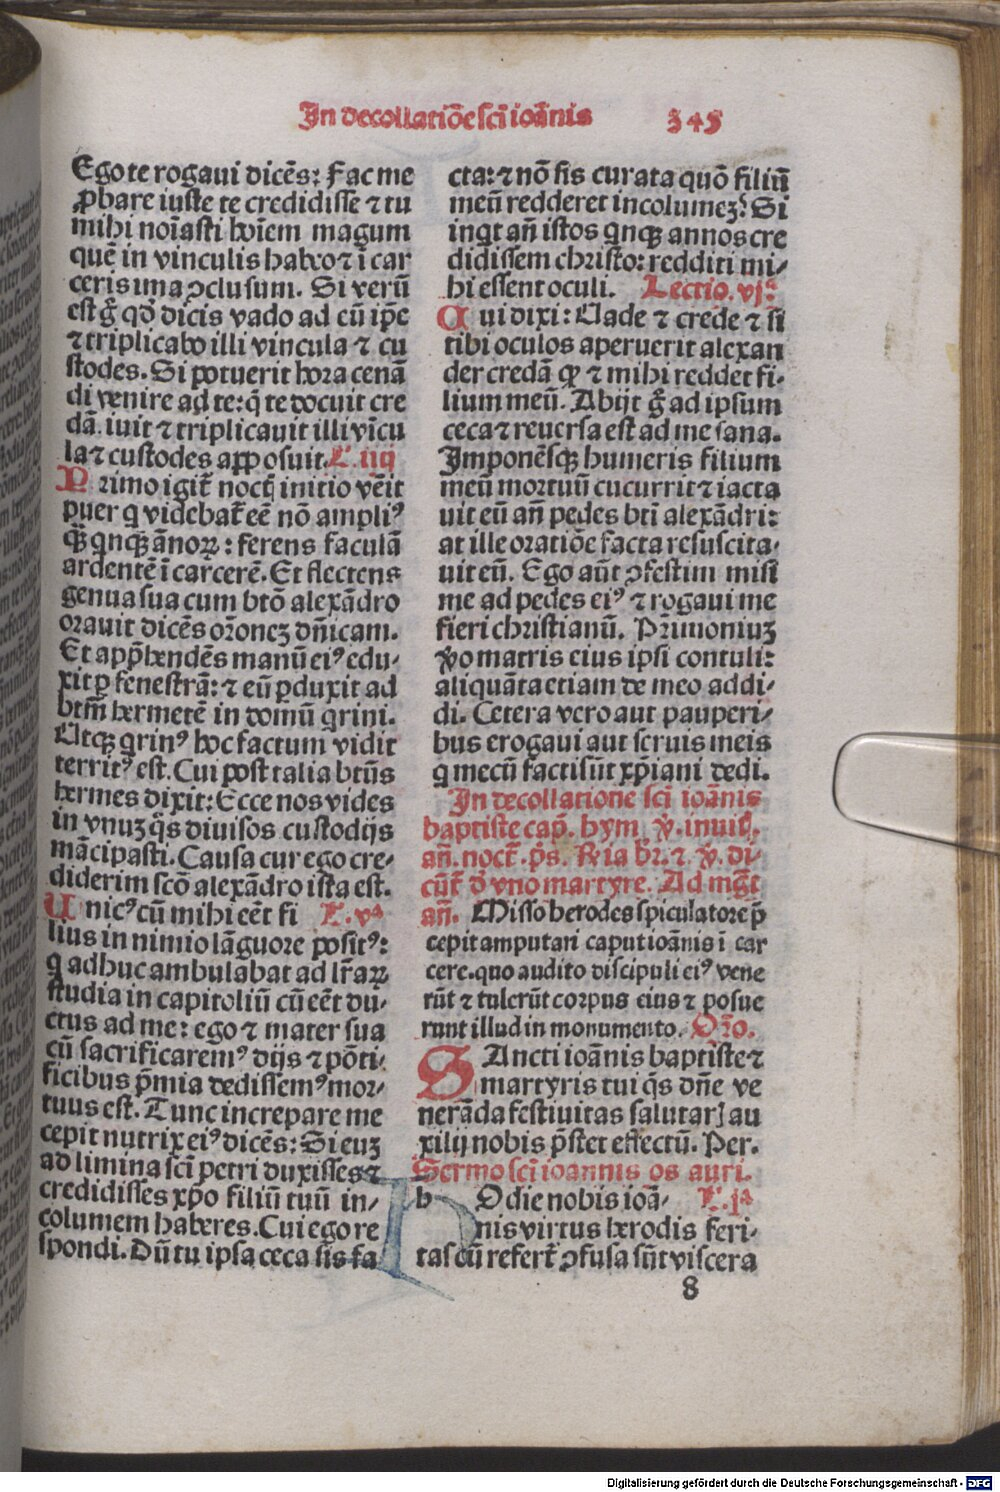 In decollatiōe sci ioānis 345
Ego te rogaui dicēs: Fac me
ꝓbare iuste te credidisse ⁊ tu
mihi noīasti hoīem magum
quē in vinculis habeo ⁊ ī car
ceris ima ꝯclusum. Si verū
est gͦ qđ dicis vado ad eū ip̄e
⁊ triplicabo illi vincula ⁊ cu
stodes. Si potuerit hora cenā
di venire ad te: q̄ te docuit cre
dā. iuit ⁊ triplicauit illi vīcu
la ⁊ custodes apposuit. L. iiij
PRimo igit̄ noctꝭ initio vēit
puer q videbat̄ eē nō ampliꝰ
qꝫ qnqꝫ ānoꝝ: ferens faculā
ardentē ī carcerē. Et flectens
genua sua cum btō alexādro
orauit dicēs orōnez dn̄icam.
Et apprehendēs manū eiꝰ edu-
xit ꝑ fenestrā: ⁊ eū ꝑduxit ad
btm̄ hermetē in domū qrini.
Utqꝫ qrinꝰ hoc factum vidit
territꝰ est. Cui post talia btūs
hermes dixit: Ecce nos vides
in vnuz q̄s diuisos custodijs
mācipasti. Causa cur ego cre-
diderim scō alexādro ista est.
Unicꝰ cū mihi eēt fi L. vᵃ
lius in nimio lāguore positꝰ:
q adhuc ambulabat ad lr̄aꝝ
studia in capitoliū cū eēt du-
ctus ad me: ego ⁊ mater sua
cū sacrificaremꝰ dijs ⁊ pōti-
ficibus p̄mia dedissemꝰ mor-
tuus est. Tunc increpare me
cepit nutrix eiꝰ dicēs: Si euz
ad limina sci petri duxisses ⁊
credidisses xp̄o filiū tuū in-
columem haberes. Cui ego re
spondi. Dū tu ipsa ceca sis fa
cta: ⁊ nō sis curata quō filiū
meū redderet incolumez? Si
inqt an̄ istos qnqꝫ annos cre
didissem christo: redditi mi-
hi essent oculi. Lectio. vjᵃ
Cui dixi: Uade ⁊ crede ⁊ si
tibi oculos aperuerit alexan
der credā qꝫ ⁊ mihi reddet fi-
lium meū. Abijt gͦ ad ipsum
ceca ⁊ reuersa est ad me sana.
Imponēsqꝫ humeris filium
meū mortuū cucurrit ⁊ iacta
uit eū an̄ pedes bti alexādri:
at ille oratiōe facta resuscita-
uit eū. Ego aūt ꝯfestim misi
me ad pedes eiꝰ ⁊ rogaui me
fieri christianū. Pr̄imoniuz
ꝟo matris eius ipsi contuli:
aliquāta etiam de meo addi-
di. Cetera vero aut pauperi-
bus erogaui aut seruis meis
q mecū facti sūt xp̄iani dedi.
In decollatione sci ioānis
baptiste cap̄. hym ꝟ. inuit.
an̄. noct̄. p̄s. Rria br. ⁊ ꝟ. di
cūt̄ đ vno martyre. Ad mḡt
an̄. Misso herodes spiculatore p̄
cepit amputari caput ioānis ī car
cere. quo audito discipuli eiꝰ vene
rūt ⁊ tulerūt corpus eius ⁊ posue
runt illud in monumento. Orō.
SAncti ioānis baptiste ⁊
martyris tui q̄s dn̄e ve
nerāda festiuitas salutarꝭ au
xilij nobis p̄stet effectū. Per.
Sermo sci ioannis os auri.
hOdie nobis ioā- L. jᵃ
nis virtus herodis feri-
tas cū refert̄ ꝯfusa sūt viscera
8
Digitalisierung gefördert durch die Deutsche Forschungsgemeinschaft - DFG